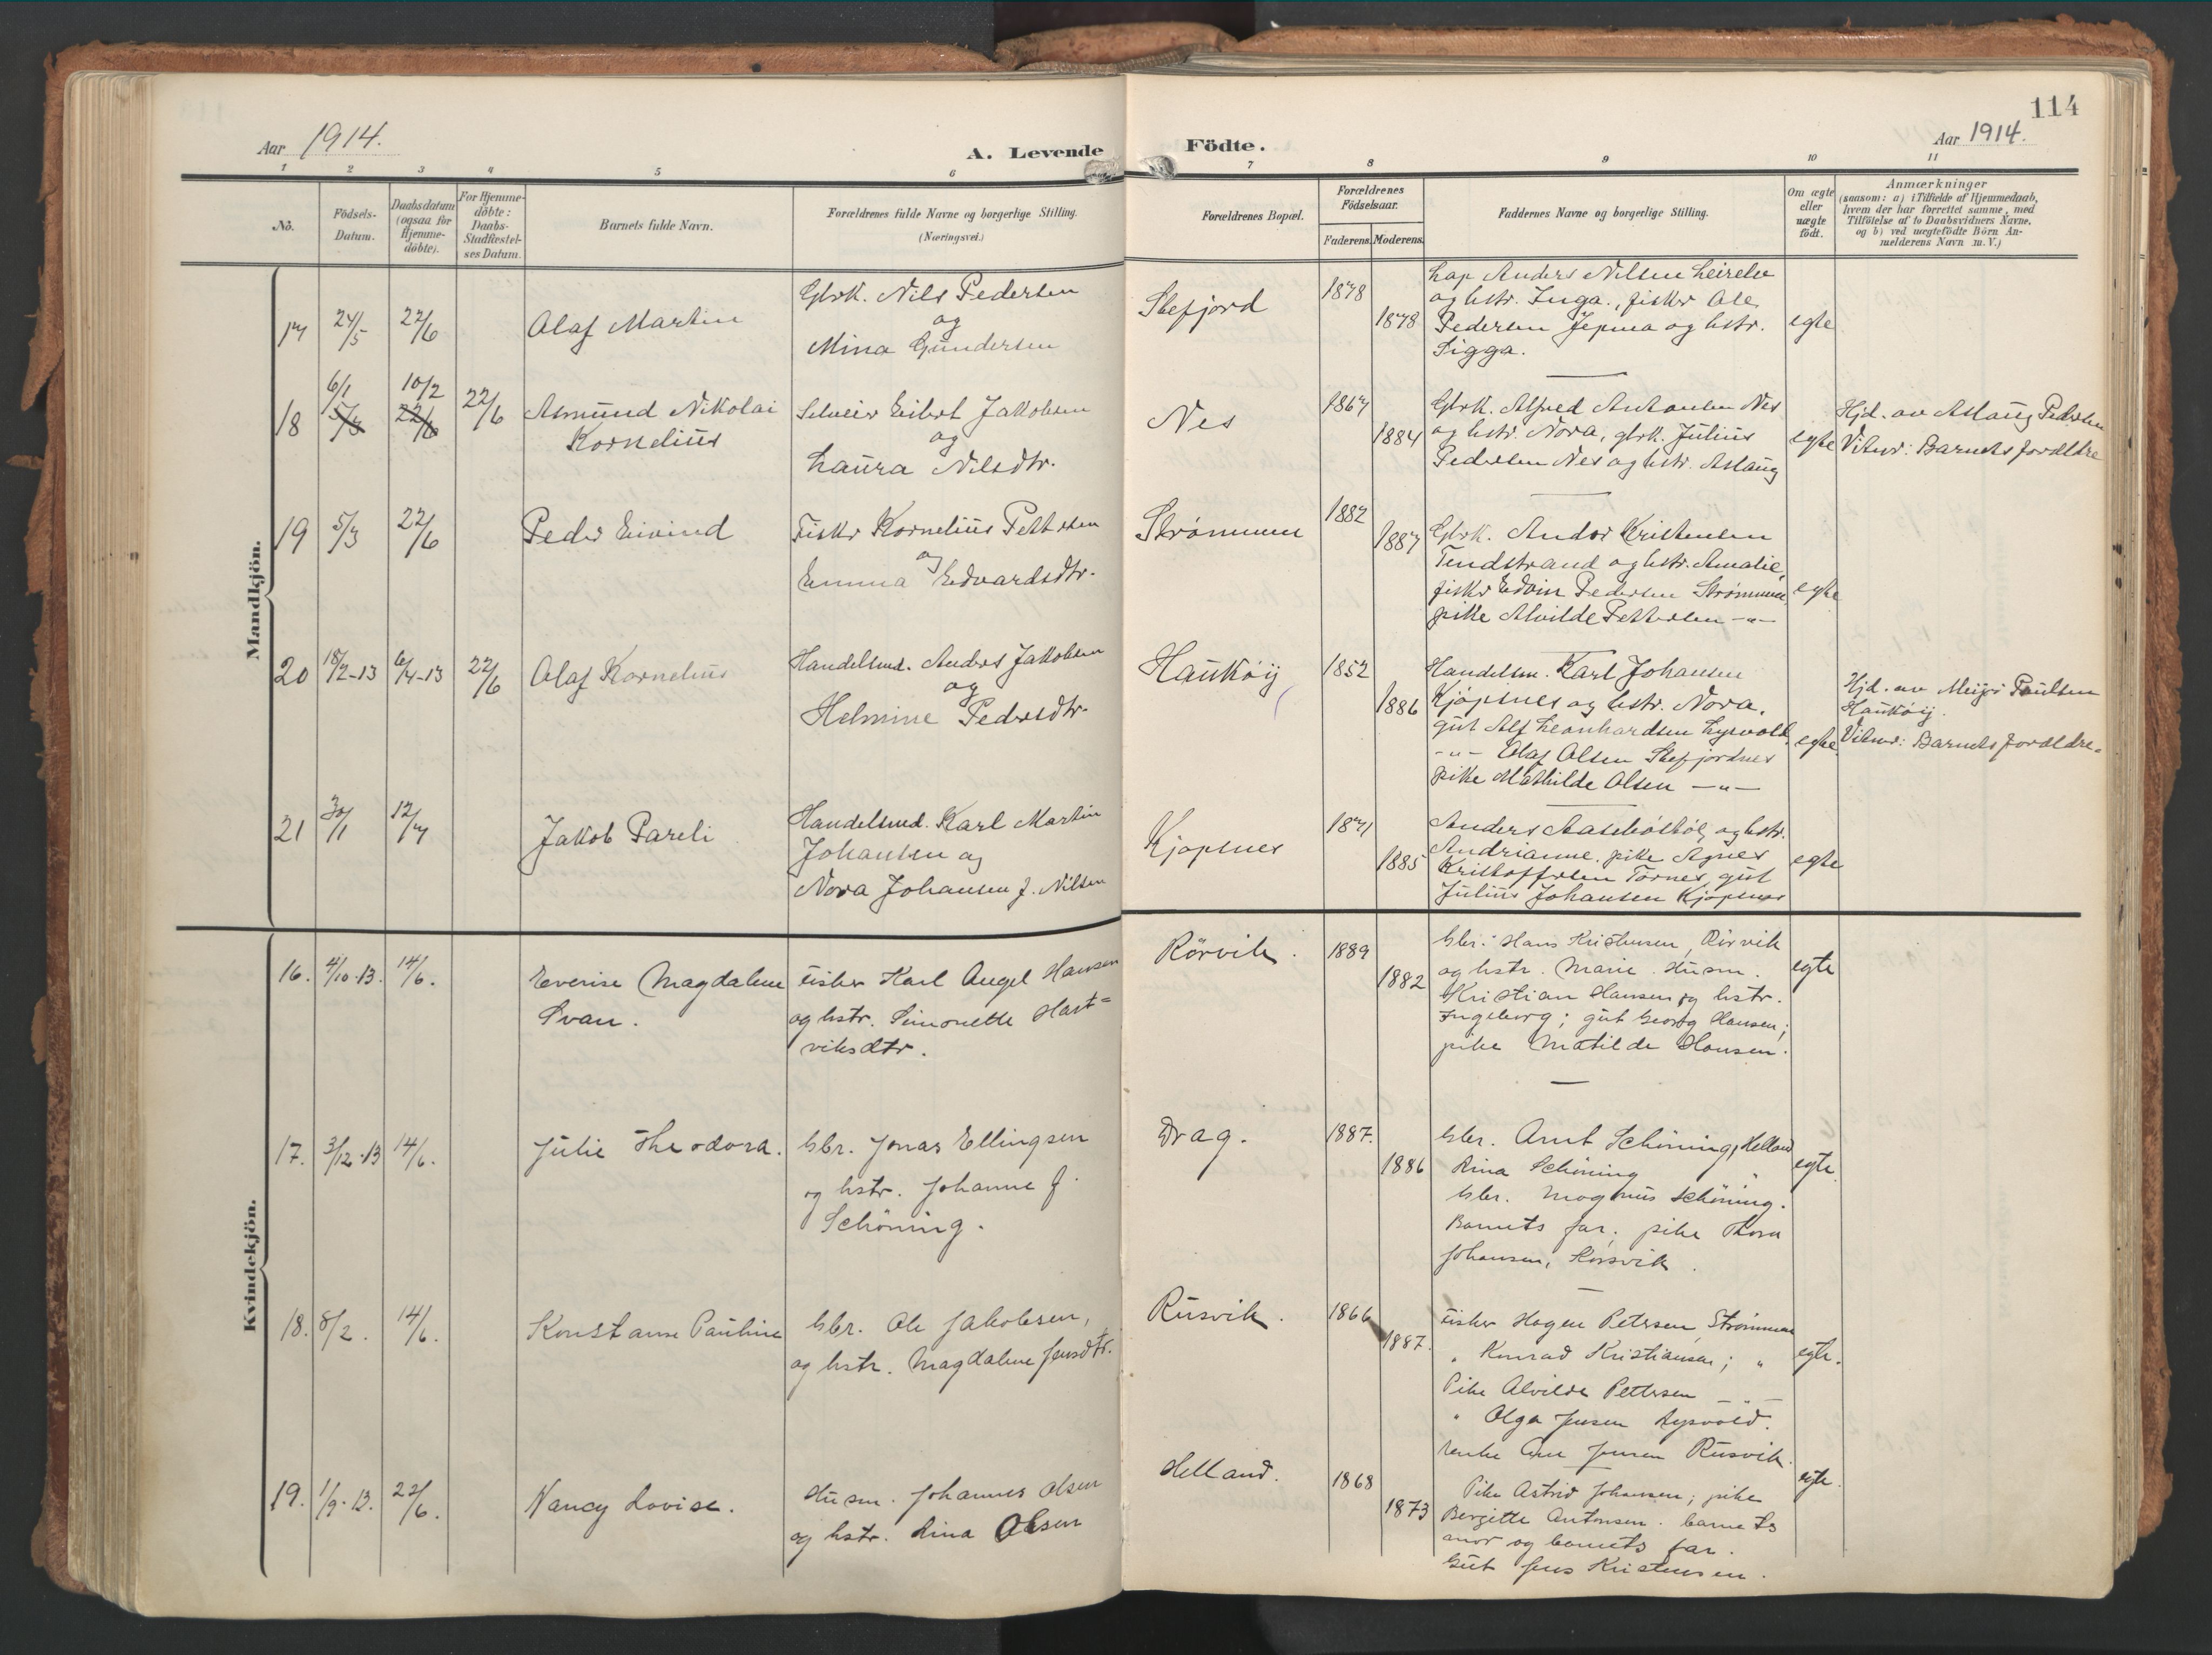 114
Aar 1914.
A. Levende Födte.
Aar 1914.
1 2 3 4 5 6 7 8 9 10 11
No.
Födsels-Datum.
Daabsdatum (ogsaa for Hjemme-döbte).
For Hjemme-döbte: Daabs-Stadfæstel-ses Datum.
Barnets fulde Navn.
Forældrenes fulde Navne og borgerlige Stilling. (Næringsvei.)
Forældrenes Bopæl.
Forældrenes Födselsaar.
Faderens. Moderens.
Faddernes Navne og borgerlige Stilling.
Om ægte eller uægte födt.
Anmærkninger
(saasom: a) i Tilfælde af Hjemmedaab,
hvem der har forrettet samme, med
Tilföielse af to Daabsvidners Navne,
og b) ved uægtefödte Börn An-
melderens Navn m. V.)
Mandkjön.
17 24/5 22/6
Olaf Martin
Gbrk. Nils Pedersen
og
Mina Gundersen
Stefjord
1878
1878
Lap Anders Nilsen Leirelv
og hstr. Inga., fisker Ole
Pedersen Jepma og hstr.
Sigga.
egte
18 6/1 5/3 10/2 22/6 22/6
Asmund Nikolai
Kornelius
Selveier Eilert Jakobsen
og
Laura Nilsdtr.
Nes
1867
1884
Gbrk. Alfred Antonsen Nes
og hstr. Nora, gbrk. Julius
Pedersen Nes og hstr. Aslaug
egte
Hjd. av Aslaug Pedersen
Vitner: Barnets foreldre
19 5/3 22/6
Peder Eivind
Fisker Kornelius Pettersen
og
Emma Edvardsdtr.
Strømmen
1882
1887
Gbrk. Andor Kristensen
Tendstrand og hstr. Amalie,
fisker Edvin Pedersen Strømmen
pike Alvilde Pettersen -"-
egte
20 18/2-13 6/4-13 22/6
Olaf Kornelius
Handelsmd. Anders Jakobsen
og
Helmine Pedersdtr.
Haukøy
1852
1886
Handelsm. Karl Johansen
Kjøpsnes og hstr. Nora,
gut Alf Leonhardsen Lysvold
-"- Olaf Olsen Stefjordnes
pike Mathilde Olsen -"-
egte
Hjd. av Meyer Paulsen
Haukøy.
Vitner: Barnets foreldre.
21 30/1 12/7
Jakob Pareli
Handelsmd. Karl Martin
Johansen og
Nora Johansen f. Nilsen
Kjøpsnes
1871
1885
Anders og hstr.
Andrianne, pike Agnes
Kristoffersen Tørnes, gut
Julius Johansen Kjøpsnes
egte
Kvindekjön.
16. 4/10-13. 14/6.
Everise Magdalene
Svan.
Fisker Karl Angel Hansen
og hstr. Simonette Hart=
viksdtr.
Rörvik.
1889
1882
Gbr. Hans Kristensen, Rörvik
og hstr. Marie. Husm.
Kristian Hansen og hstr.
Ingeborg; gut Georg Hansen;
pike Matilde Hansen.
egte
17. 3/12-13 14/6.
Julie Theodora.
Gbr. Jonas Ellingsen
og hstr. Johanne f.
Schöning.
Drag.
1887.
1886
Gbr. Arnt Schöning, Helland
Rina Schöning "
Gbr. Magnus Schöning.
Barnets far; pike Thora
Johansen, Korsvik.
egte.
18. 8/2. 14/6.
Konstanse Pauline
Gbr. Ole Jakobsen,
og hstr. Magdalene Jensdtr.
Rusvik.
1866
1887.
Fisker Hagen Petersen, Strømmen
" Konrad Kristiansen; "
Pike Alvilde Pettersen -"-
" Olga Jensen Lysvold.
enke Jensen Rusvik.
egte.
19. 1/9-13. 22/6.
Nancy Lovise.
Husm. Johannes Olsen
og hstr. Lina Olsen
Helland.
1868
1873
Pike Astrid Johansen; pike
Bergitte Antonsen. barnets
mor og barnets far.
Gut Jens Kristensen.
egte.